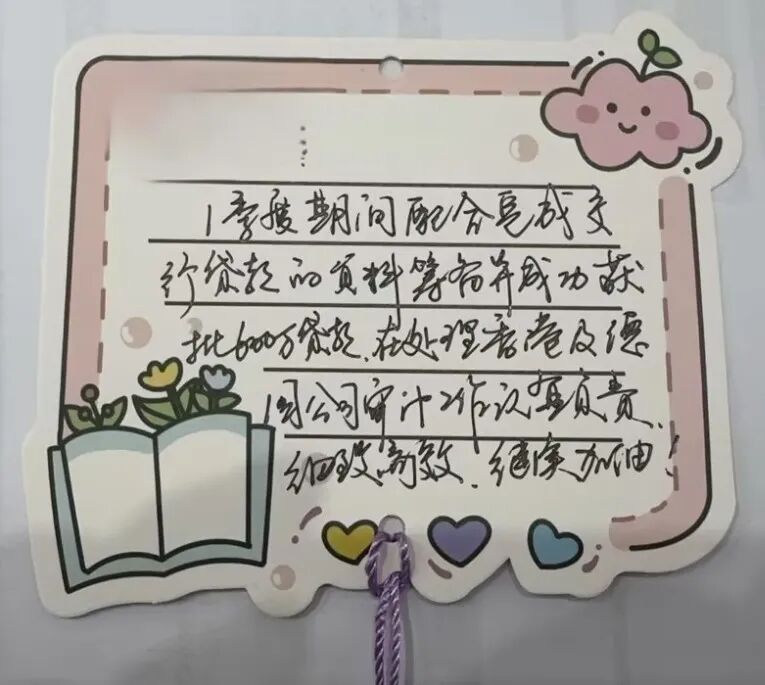 1季度期间配合完成交
行贷款的资料筹备并成功获
批600万贷款.在处理香港及德
国公司审计工作认真负责、
细致高效.继续加油!